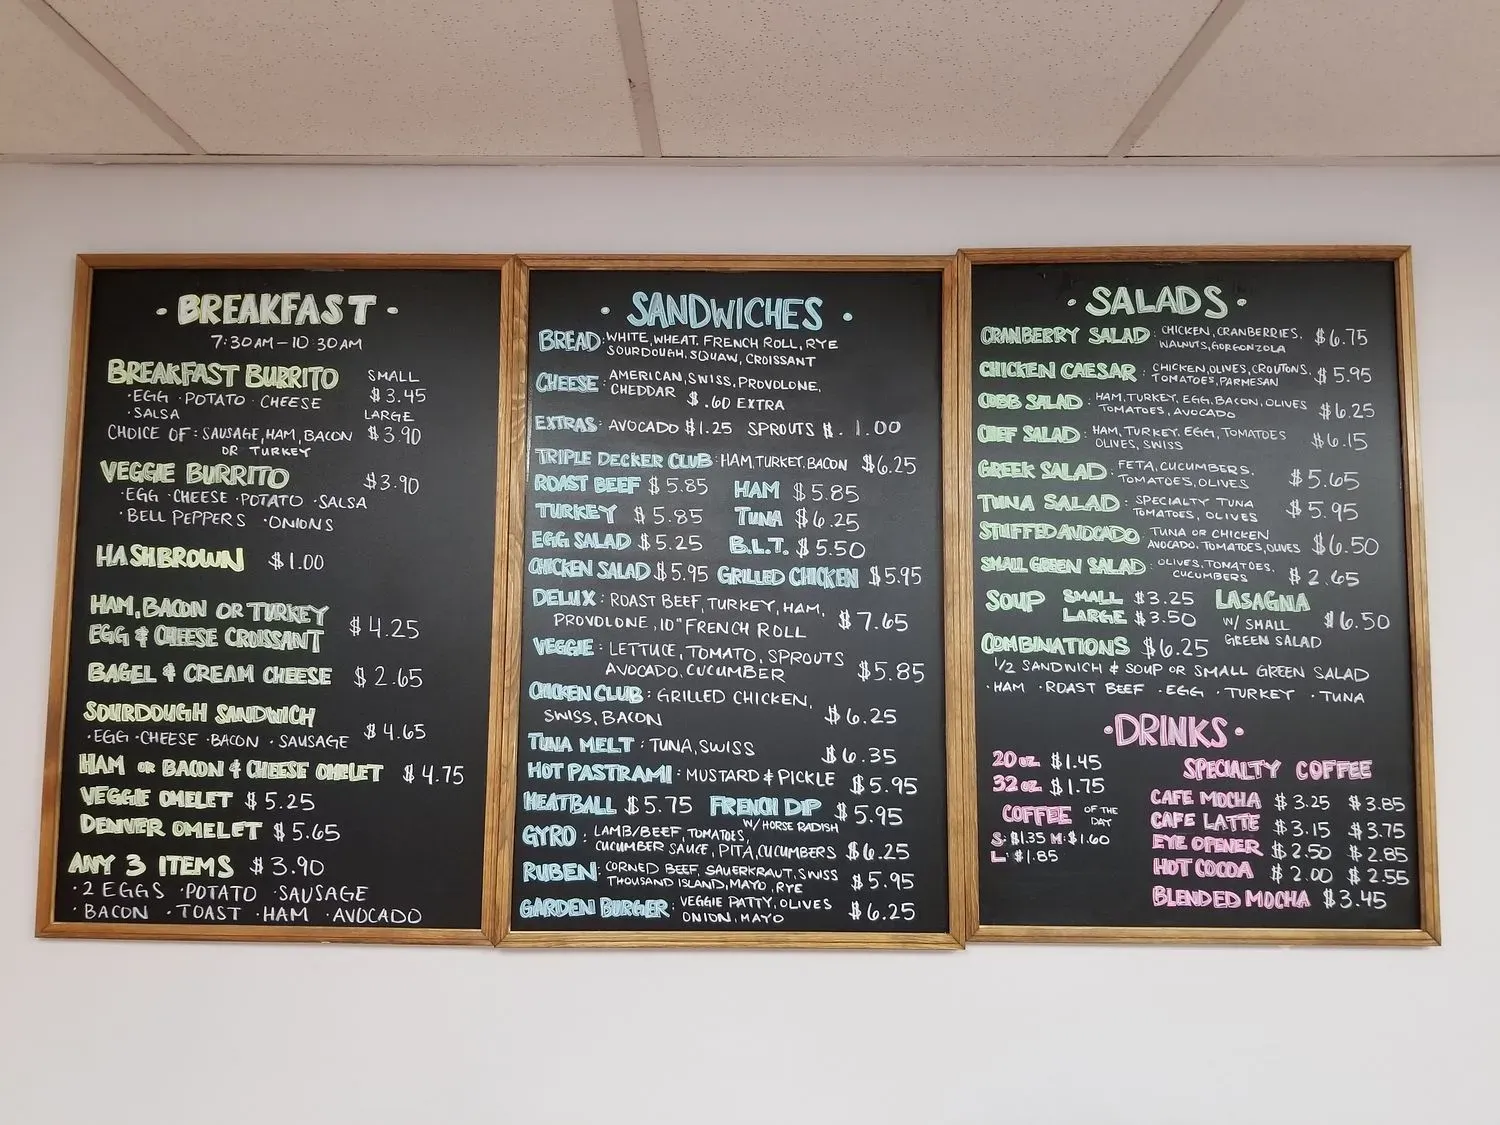 · BREAKFAST ·
7:30AM-10:30AM
BREAKFAST BURRITO SMALL
$3.45
·EGG ·POTATO ·CHEESE
·SALSA LARGE
CHOICE OF: SAUSAGE, HAM, BACON $3.90
OR TURKEY
VEGGIE BURRITO $3.90
·EGG ·CHEESE ·POTATO ·SALSA
·BELL PEPPERS ·ONIONS
HASHBROWN $1.00
HAM, BACON OR TURKEY
EGG & CHEESE CROISSANT $4.25
BAGEL & CREAM CHEESE $2.65
SOURDOUGH SANDWICH
·EGG ·CHEESE ·BACON ·SAUSAGE $4.65
HAM OR BACON & CHEESE OMELET $4.75
VEGGIE OMELET $5.25
DENVER OMELET $5.65
ANY 3 ITEMS $3.90
·2 EGGS ·POTATO ·SAUSAGE
·BACON ·TOAST ·HAM ·AVOCADO
SANDWICHES ·
BREAD: WHITE, WHEAT, FRENCH ROLL, RYE
SOURDOUGH, SQUAW, CROISSANT
CHEESE: AMERICAN, SWISS, PROVOLONE,
CHEDDAR $.60 EXTRA
EXTRAS: AVOCADO $1.25 SPROUTS $. 1.00
TRIPLE DECKER CLUB: HAM, TURKEY, BACON $6.25
ROAST BEEF $5.85 HAM $5.85
TURKEY $5.85 TUNA $6.25
EGG SALAD $5.25 B.L.T. $5.50
CHICKEN SALAD $5.95 GRILLED CHICKEN $5.95
DELUX: ROAST BEEF, TURKEY, HAM,
PROVOLONE, 10" FRENCH ROLL $7.65
VEGGIE: LETTUCE, TOMATO, SPROUTS
AVOCADO, CUCUMBER $5.85
CHICKEN CLUB: GRILLED CHICKEN,
SWISS, BACON $6.25
TUNA MELT: TUNA, SWISS $6.35
HOT PASTRAMI: MUSTARD & PICKLE $5.95
MEATBALL $5.75 FRENCH DIP $5.95
W/HORSE RADISH
GYRO: LAMB/BEEF, TOMATOES,
CUCUMBER SAUCE, PITA, CUCUMBERS $6.25
RUBEN: CORNED BEEF, SAUERKRAUT, SWISS
THOUSAND ISLAND, MAYO, RYE $5.95
GARDEN BURGER: VEGGIE PATTY, OLIVES
ONION, MAYO $6.25
· SALADS ·
CRANBERRY SALAD: CHICKEN, CRANBERRIES, $6.75
WALNUTS, GORGONZOLA
CHICKEN CAESAR: CHICKEN, OLIVES, CROUTONS, $5.95
TOMATOES, PARMESAN
COBB SALAD: HAM, TURKEY, EGG, BACON, OLIVES $6.25
TOMATOES, AVOCADO
CHEF SALAD: HAM, TURKEY, EGG, TOMATOES $6.15
OLIVES, SWISS
GREEK SALAD: FETA, CUCUMBERS, $5.65
TOMATOES, OLIVES
TUNA SALAD: SPECIALTY TUNA $5.95
TOMATOES, OLIVES
STUFFED AVOCADO: TUNA OR CHICKEN $6.50
AVOCADO, TOMATOES, OLIVES
SMALL GREEN SALAD: OLIVES, TOMATOES, $2.65
CUCUMBERS
SOUP SMALL $3.25
LARGE $3.50
LASAGNA
W/ SMALL $6.50
GREEN SALAD
COMBINATIONS $6.25
1/2 SANDWICH & SOUP OR SMALL GREEN SALAD
·HAM ·ROAST BEEF ·EGG ·TURKEY ·TUNA
·DRINKS·
20 OZ $1.45
32 OZ $1.75
COFFEE OF THE
DAY
S: $1.35 M: $1.60
L: $1.85
SPECIALTY COFFEE
CAFE MOCHA $3.25 $3.85
CAFE LATTE $3.15 $3.75
EYE OPENER $2.50 $2.85
HOT COCOA $2.00 $2.55
BLENDED MOCHA $3.45